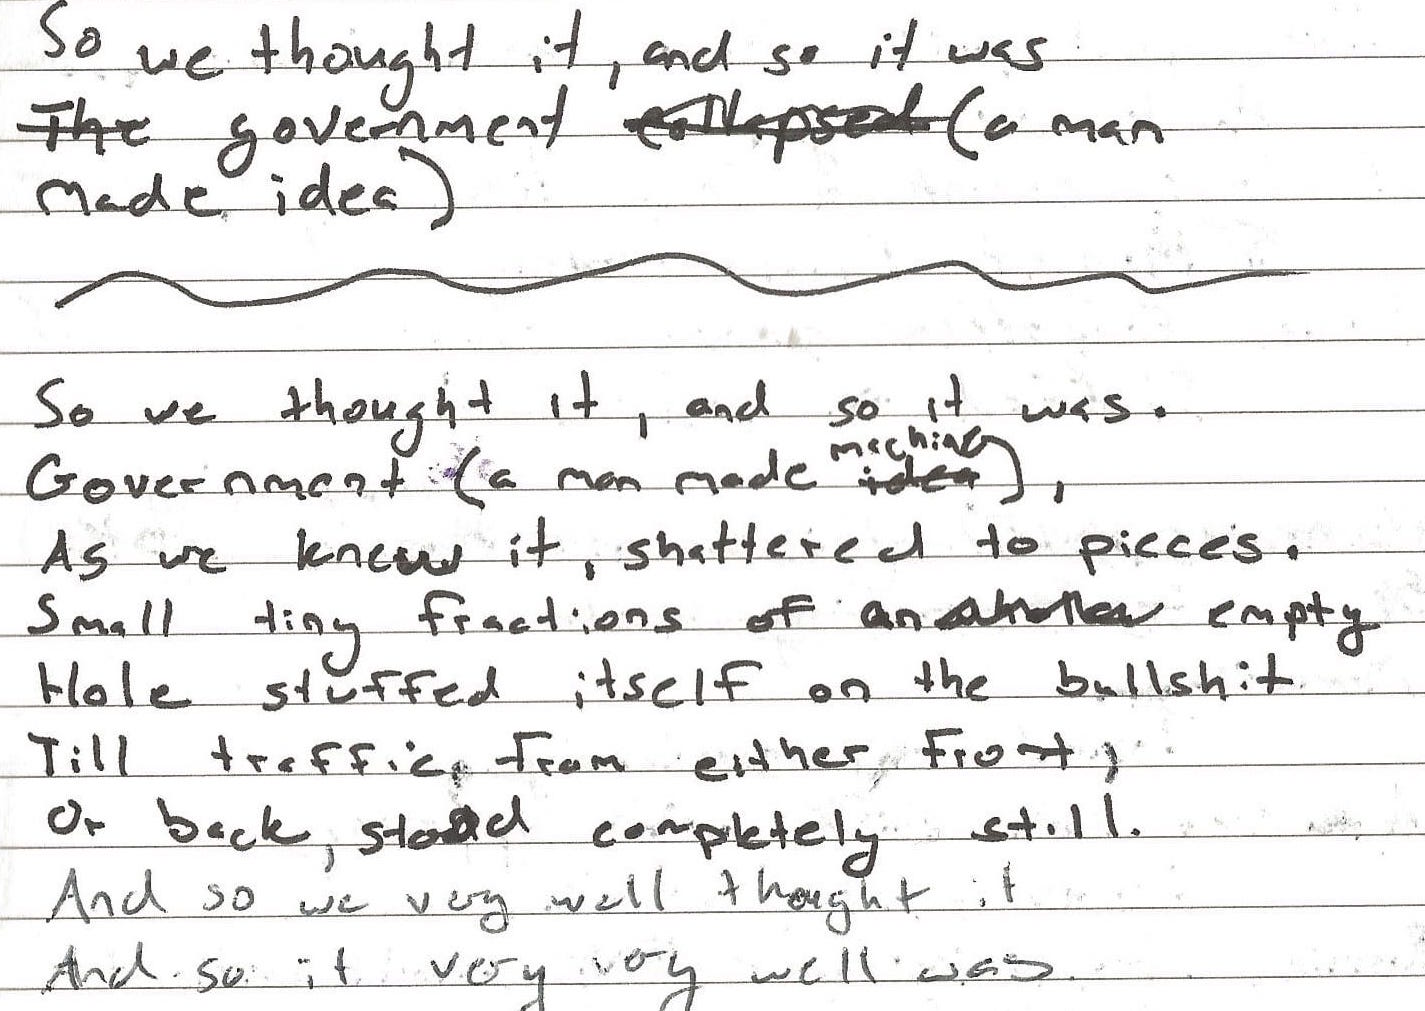 So we thought it, and so it was
The government collapsed (a man
made idea)
So we thought it, and so it was.
Government (a man made idea machine),
As we knew it, shattered to pieces.
Small tiny fractions of an empty
Hole stuffed itself on the bullshit
Till traffic, from either, front,
Or back, stood completely still.
And so we very well thought it
And so it very very well was